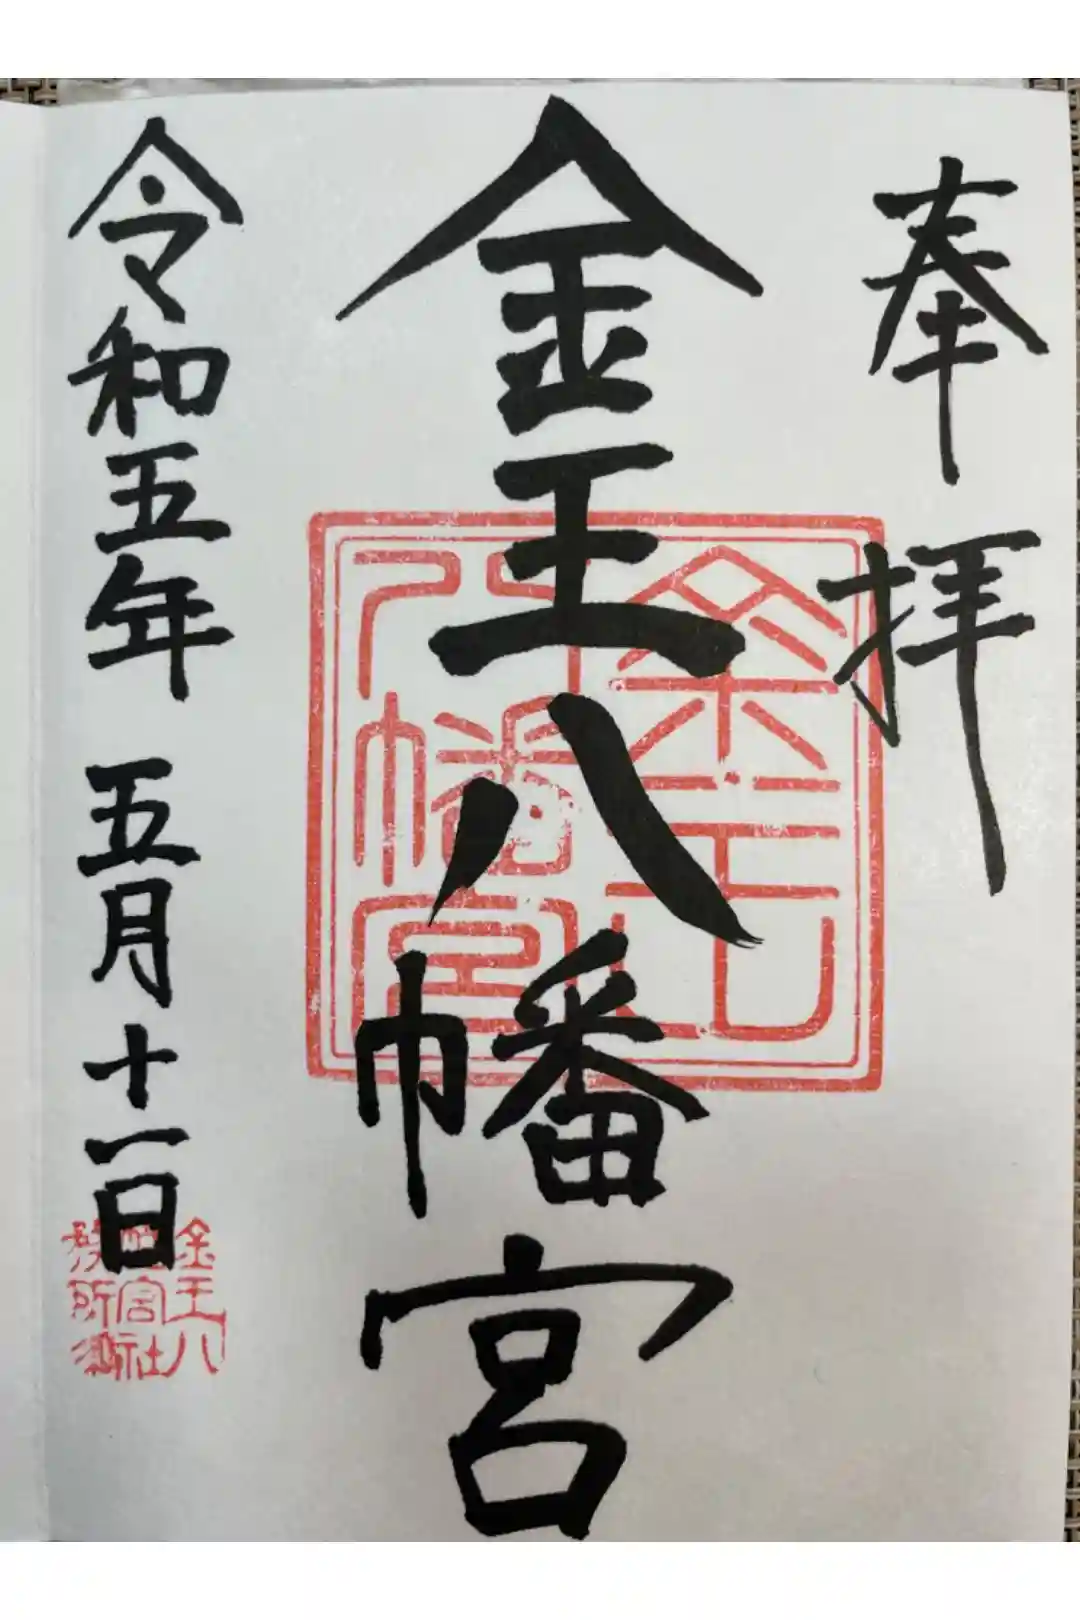 奉拝
金王八幡宮
令和五年 五月十一日
金王八
幡宮
金王八
幡宮社
務所印